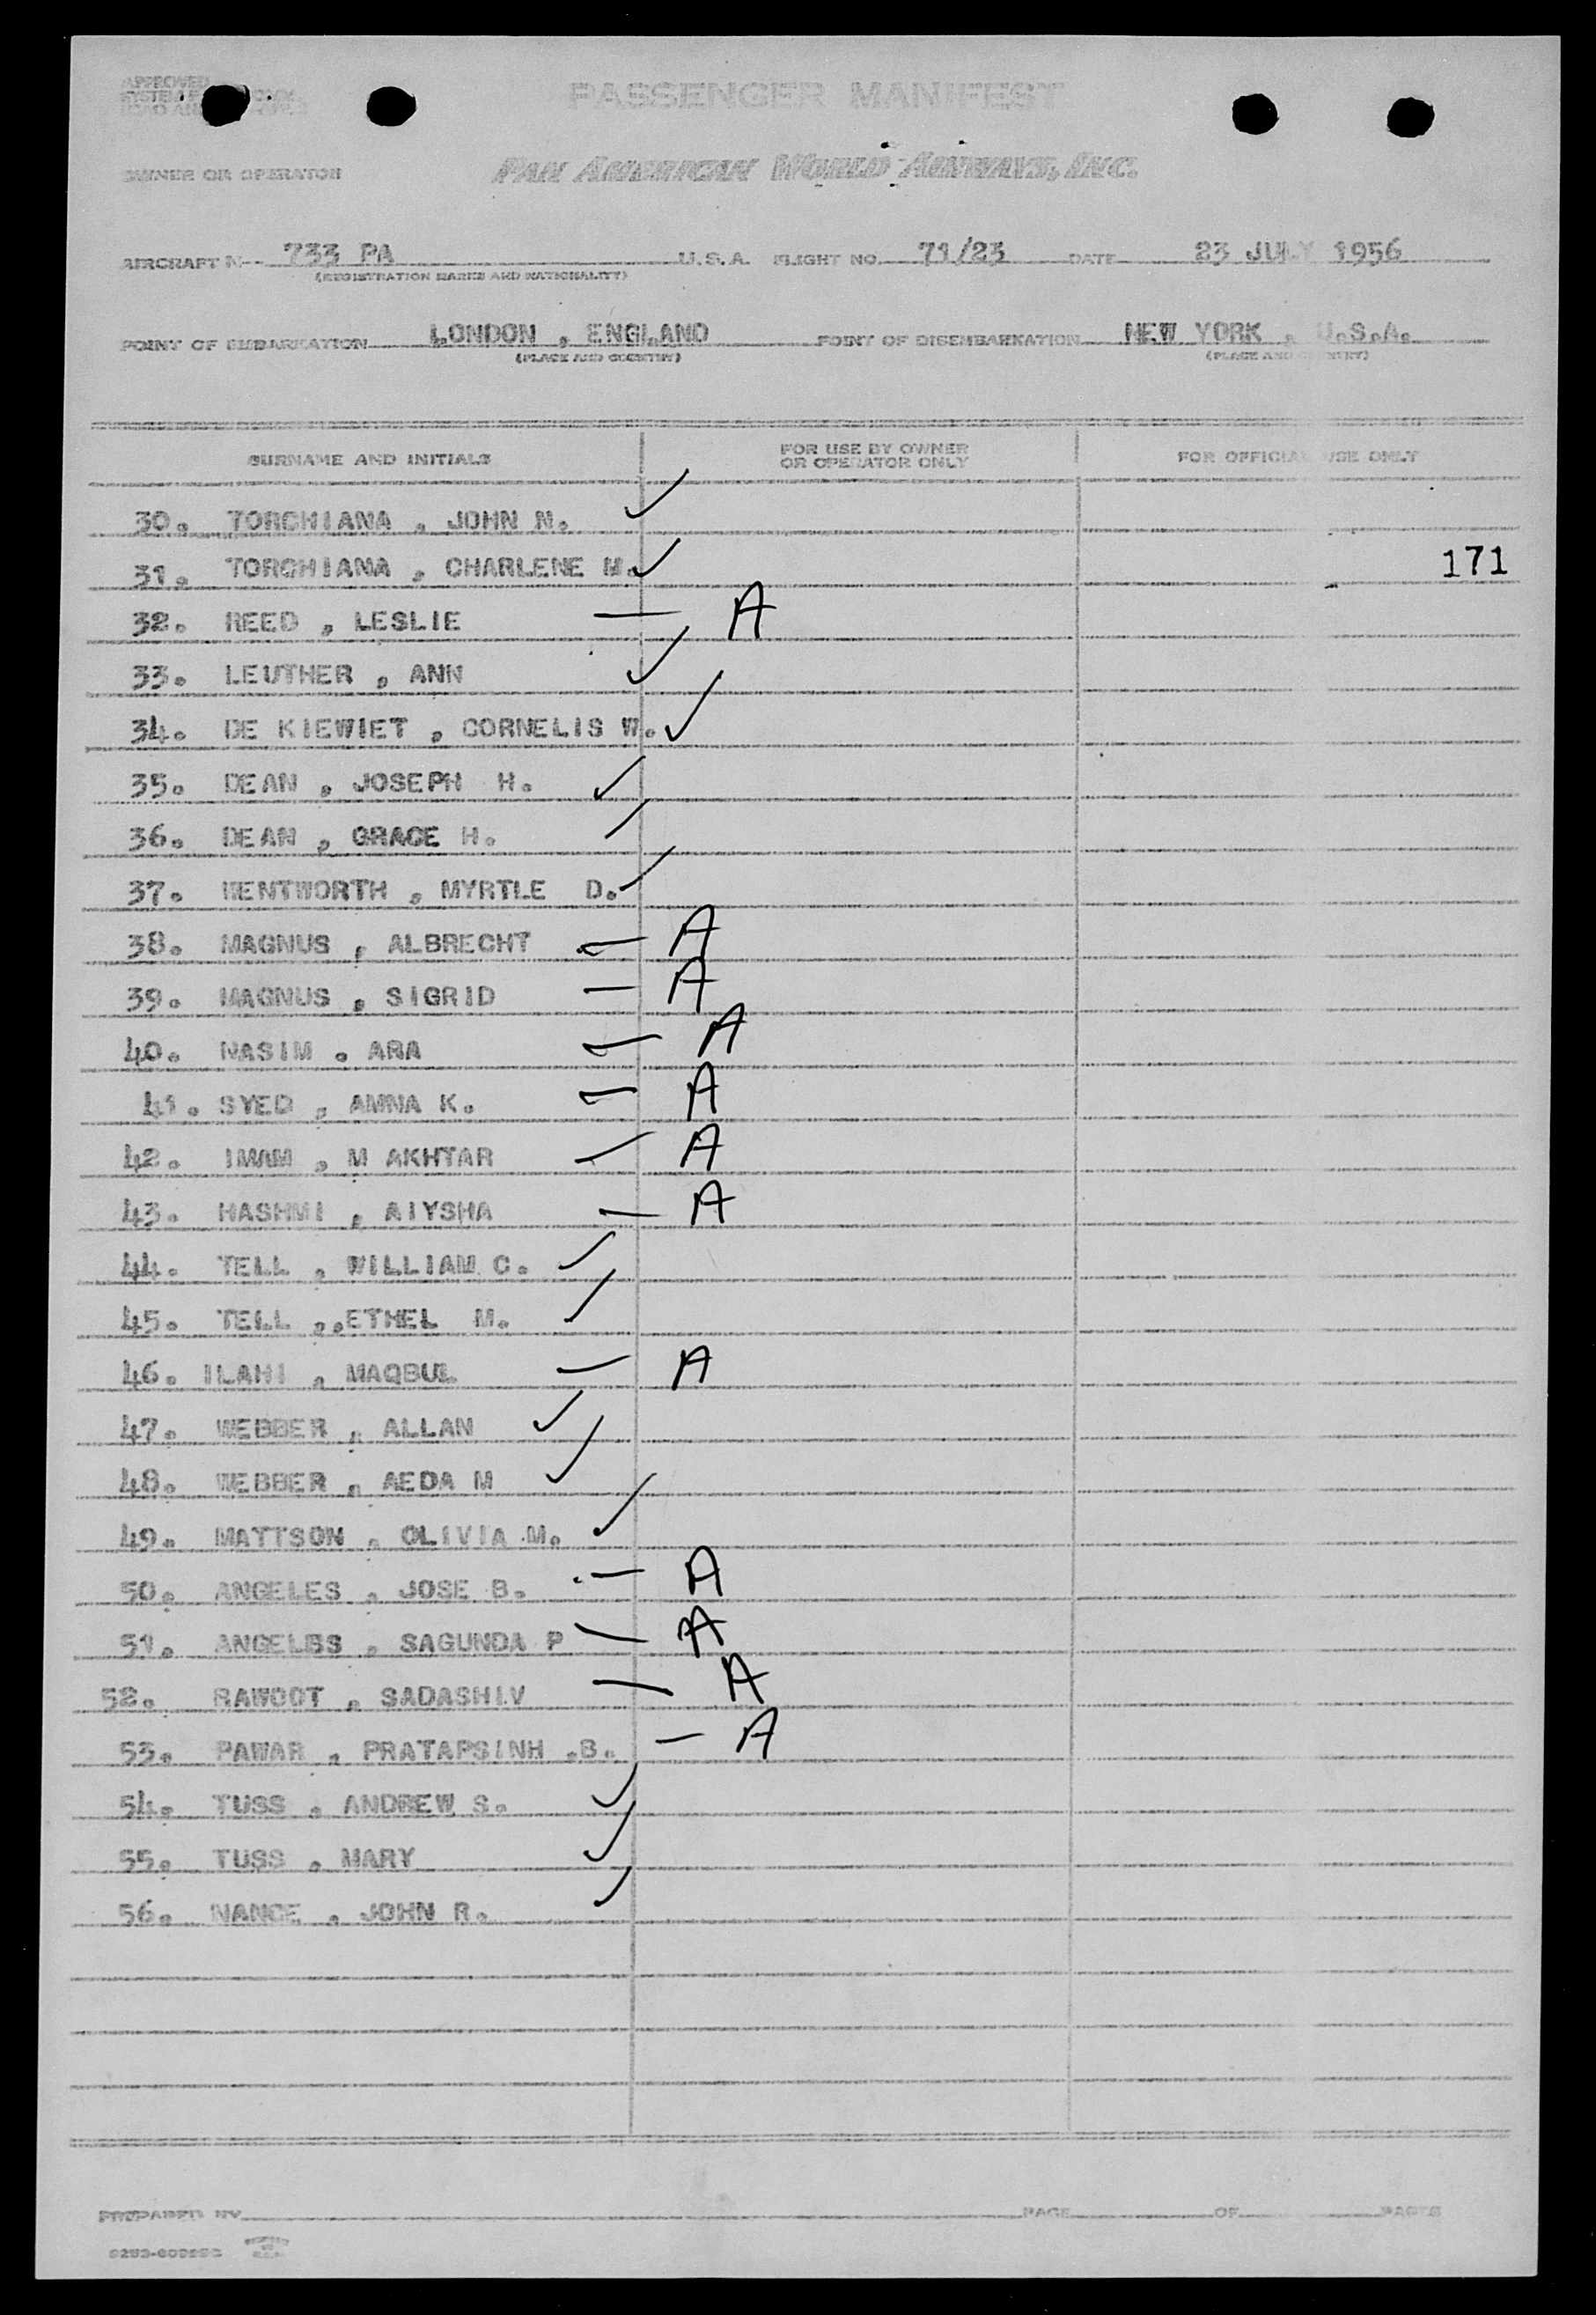 APPROVED
PASSENGER MANIFEST
OWNER OR OPERATOR PAN AMERICAN WORLD AIRWAYS, INC.
AIRCRAFT N 733 PA U.S.A. FLIGHT NO. 71/23 DATE 23 JULY 1956
(REGISTRATION MARKS AND NATIONALITY)
POINT OF EMBARKATION LONDON , ENGLAND POINT OF DISEMBARKATION NEW YORK , U.S.A.
(PLACE AND COUNTRY) (PLACE AND COUNTRY)
SURNAME AND INITIALS FOR USE BY OWNER OR OPERATOR ONLY FOR OFFICIAL USE ONLY
30. TORCHIANA , JOHN N. ✓
31. TORCHIANA , CHARLENE M. ✓ 171
32. REED , LESLIE — A
33. LEUTHER , ANN ✓
34. DE KIEWIET , CORNELIS W. ✓
35. DEAN , JOSEPH H. ✓
36. DEAN , GRACE H. ✓
37. WENTWORTH , MYRTLE D. ✓
38. MAGNUS , ALBRECHT — A
39. MAGNUS , SIGRID — A
40. NASIM , ARA — A
41. SYED , AMNA K. — A
42. IMAM , M AKHTAR — A
43. HASHMI , AIYSHA — A
44. TELL , WILLIAM C. ✓
45. TELL ,.ETHEL M. ✓
46. ILAHI , MAQBUL — A
47. WEBBER , ALLAN ✓
48. WEBBER , AEDA M ✓
49. MATTSON , OLIVIA M. ✓
50. ANGELES , JOSE B. — A
51. ANGELBS , SAGUNDA P — A
52. RAWOOT , SADASHIV — A
53. PAWAR , PRATAPSINH .B. — A
54. TUSS , ANDREW S. ✓
55. TUSS , MARY ✓
56. NANCE , JOHN R. ✓
PREPARED BY PAGE OF PAGES